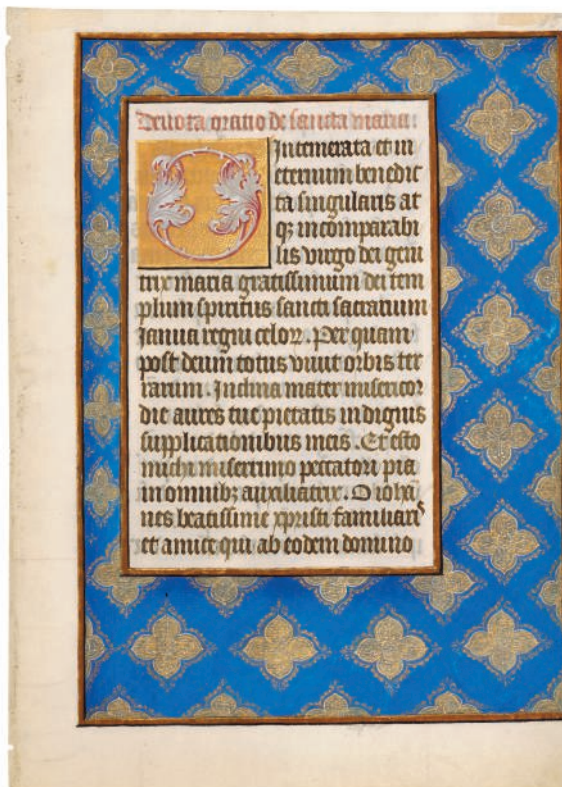 Deuota oratio de sancta maria
O Intemerata et in
eternum benedic
ta singularis at
qꝫ incomparabi
lis virgo dei geni
trix maria gratissimum dei tem
plum spiritus sancti sacrarium
Janua regni celoꝝ. Per quam
post deum totus viuit orbis ter
rarum. Inclina mater misericor
die aures tue pietatis indignis
supplicationibus meis. Et esto
michi miserrimo peccatori pia
in omnibꝫ auxiliatrix. O ioha
nes beatissime xpristi familiaris
et amice qui ab eodem domino